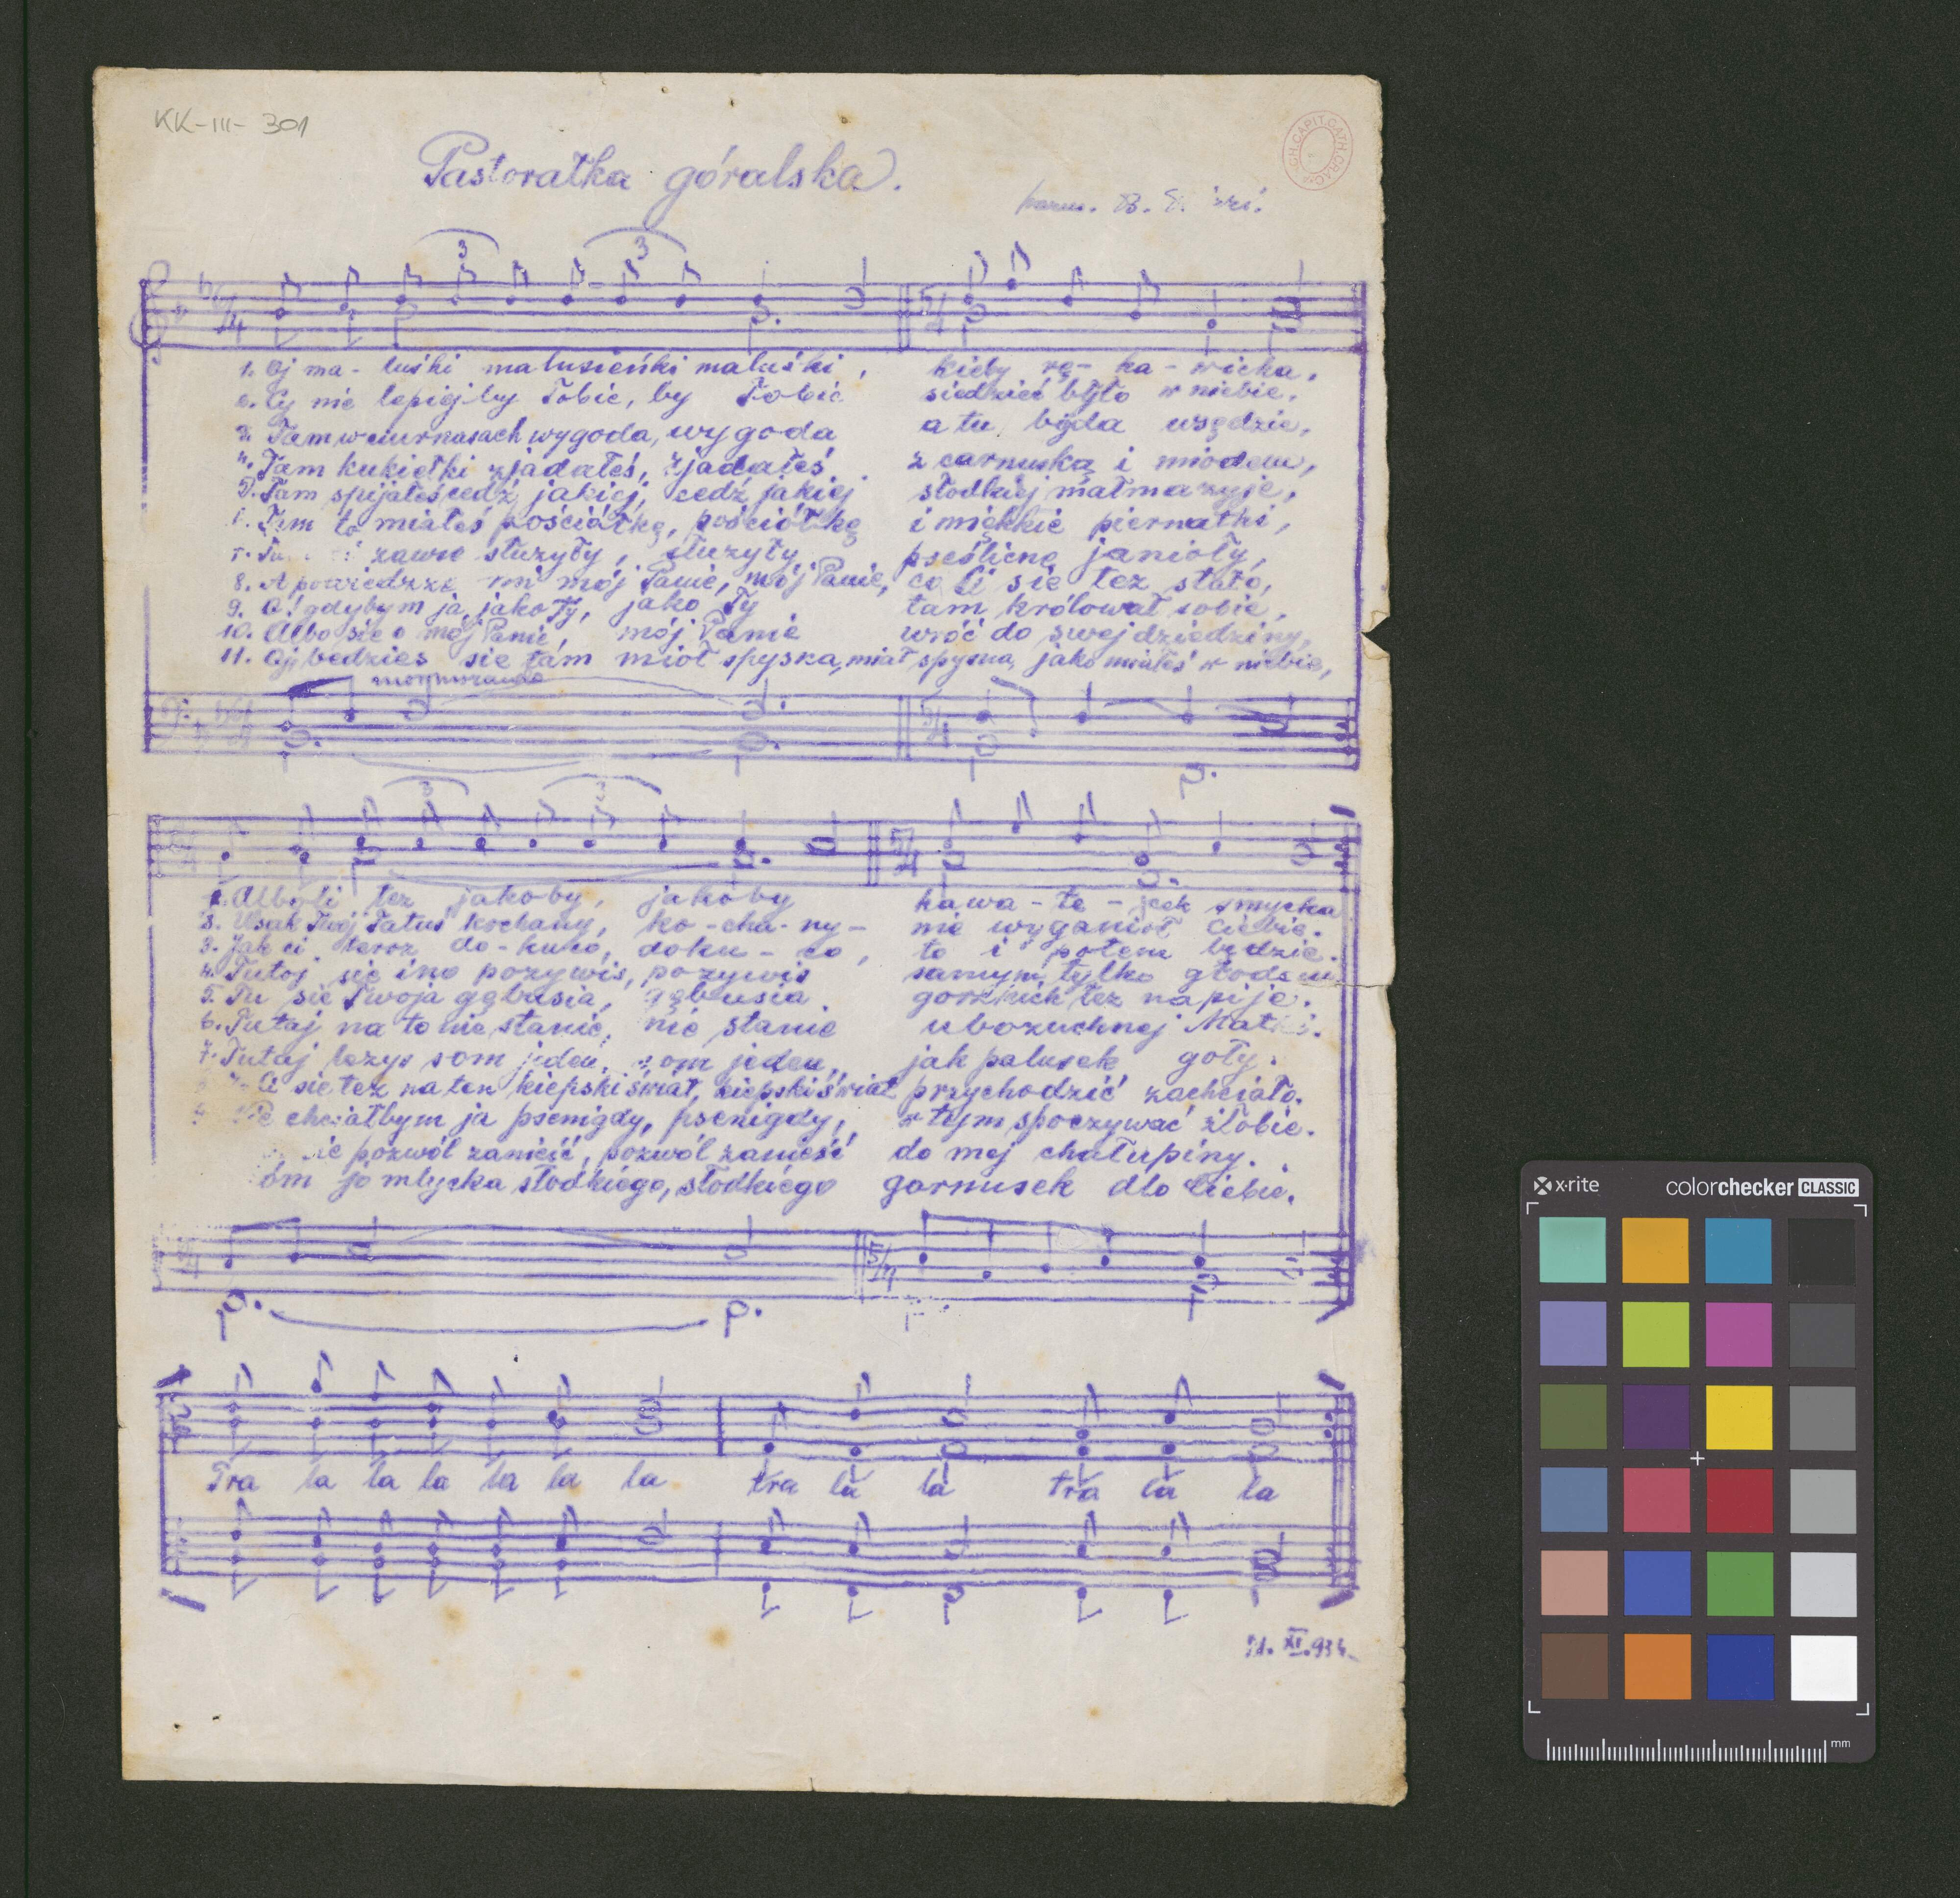 KK-III-301
Pastorałka góralska.
harm. B.
ARCH.CAPIT.CATH.CRAC.
3 3
1. Oj ma - luśki malusieńki maluśki, kieby rę - ka - wicka,
2. Cy nie lepiej by Tobie, by Tobie siedzieć było w niebie,
3. Tam wciurnasach wygoda, wygoda a tu bijda wsędzie,
4. Tam kukiełki zjadałeś, zjadałeś z carnuską i miodem,
5. Tam spijałeś cedź jakiej, cedź jakiej słodkiej małmazyje,
Tam to miałeś pościółkę, pościółkę i miękkie piernatki,
zawse słuzyły, słuzyły pseślicne janioły,
8. A powiedzze mi mój Panie, mój Panie, co Ci sie tez stało,
9. O! gdybym ja jako Ty, jako Ty tam królował sobie,
10. Albo sie o mój Panie, mój Panie wróć do swej dziedziny,
11. Oj bedzies sie tam mioł spyska, miał spyska, jako miałeś w niebie,
mormorando
3 3
1. Alboli tez jakoby, jakoby kawa - te - jcek smycka
2. Wsak Twój Tatuś kochany, ko - cha - ny - nie wyganioł Ciebie.
3. Jak ci teroz do - kuco, doku - co, to i potem będzie.
4. Tutoj się ino pozywis, pozywis samym tylko głodem
5. Tu sie Twoja gębusia, gębusia gorzkich łez napije.
6. Tutaj na to nie stanie, nie stanie ubozuchnej Matki.
7. Tutaj lezys som jeden, som jeden, jak palusek goły.
Ci sie tez na ten kiepski świat, kiepski świat przychodzić zachciało.
Nie chciałbym ja psenigdy, psenigdy, w tym spoczywać żłobie.
sie pozwól zanieść, pozwól zanieść do mej chałupiny.
óm jo mlycka słodkiego, słodkiego garnusek dlo Ciebie.
Tra la la la la la la tra la la tra la la
XI.934.
x·rite colorchecker CLASSIC
mm